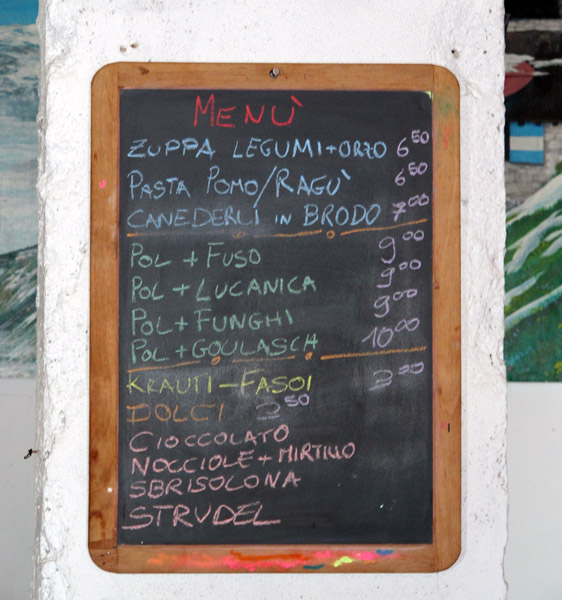 MENÙ
ZUPPA LEGUMI+ORZO 6.50
PASTA POMO/RAGU' 6.50
CANEDERLI IN BRODO 7.00
POL + FUSO 9.00
POL + LUCANICA 9.00
POL + FUNGHI 9.00
POL + GOULASCH 10.00
KRAUTI-FASOI 3.00
DOLCI 3.50
CIOCCOLATO
NOCCIOLE + MIRTILLO
SBRISOLONA
STRUDEL